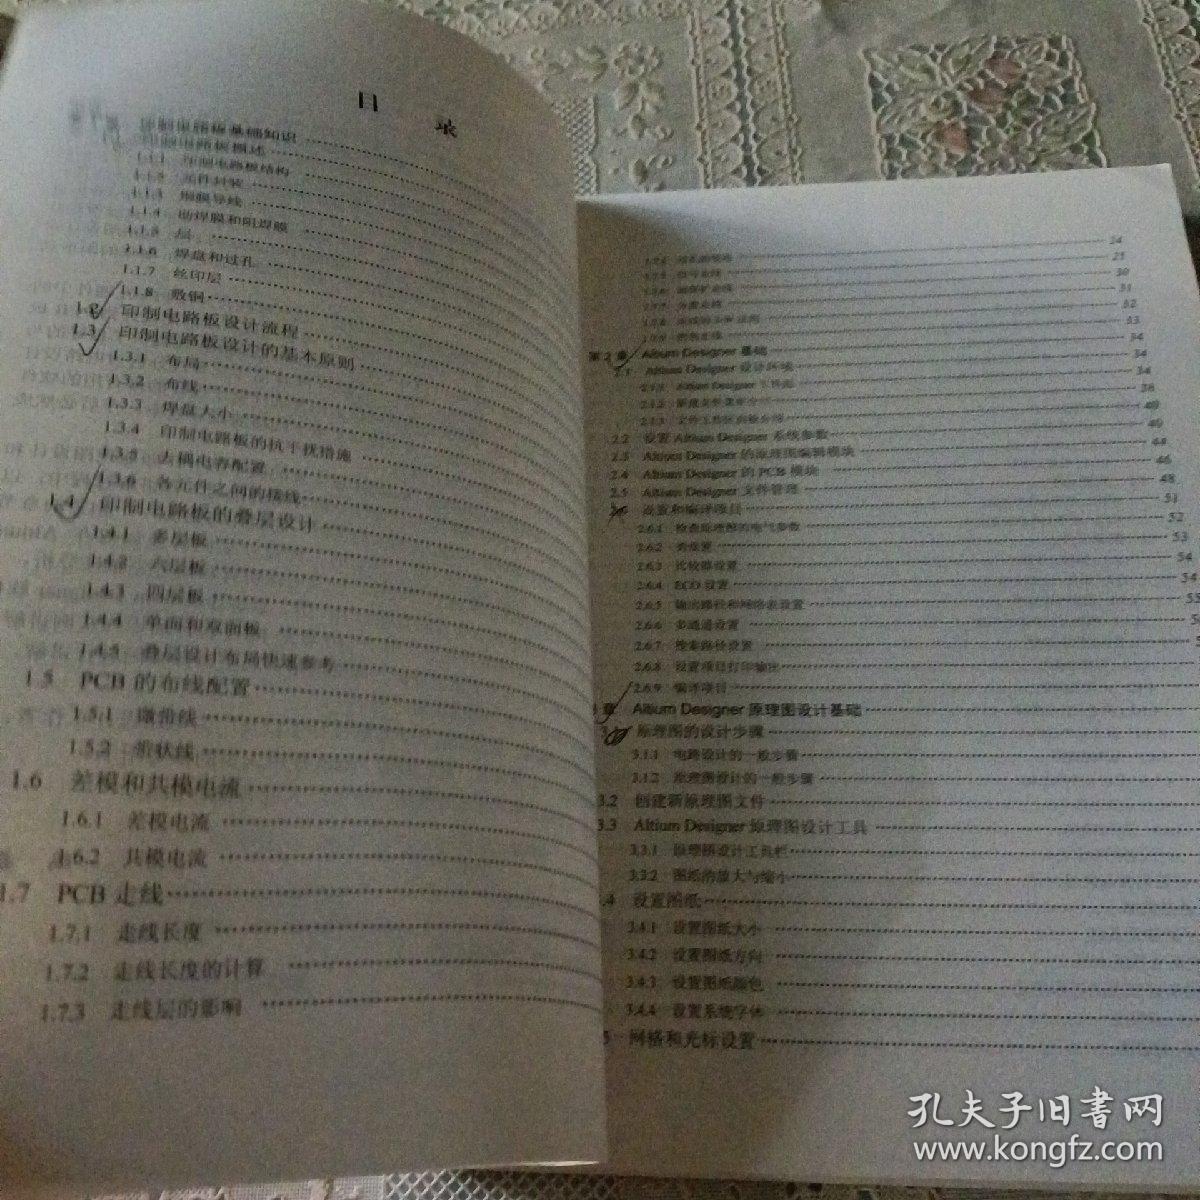 目 录
印制电路板基础知识
印制电路板概述
1.1.1 印制电路板结构
1.1.2 元件封装
1.1.3 铜膜导线
1.1.4 助焊膜和阻焊膜
1.1.5 层
1.1.6 焊盘和过孔
1.1.7 丝印层
1.1.8 敷铜
1.2 印制电路板设计流程
1.3 印制电路板设计的基本原则
1.3.1 布局
1.3.2 布线
1.3.3 焊盘大小
1.3.4 印制电路板的抗干扰措施
1.3.5 去耦电容配置
1.3.6 各元件之间的接线
1.4 印制电路板的叠层设计
1.4.1 多层板
1.4.2 六层板
1.4.3 四层板
1.4.4 单面和双面板
1.4.5 叠层设计布局快速参考
1.5 PCB 的布线配置
1.5.1 微带线
1.5.2 带状线
1.6 差模和共模电流
1.6.1 差模电流
1.6.2 共模电流
1.7 PCB 走线
1.7.1 走线长度
1.7.2 走线长度的计算
1.7.3 走线层的影响
第 2 章 Altium Designer 基础
2.1 Altium Designer 设计环境
2.2 设置 Altium Designer 系统参数
2.3 Altium Designer 的原理图编辑模块
2.4 Altium Designer 的 PCB 模块
2.5 Altium Designer 文件管理
设置和编译项目
2.6.1 检查原理图的电气参数
2.6.2 类设置
2.6.3 比较器设置
2.6.4 ECO 设置
2.6.5 输出路径和网络表设置
2.6.6 多通道设置
2.6.7 搜索路径设置
2.6.8 设置项目打印输出
2.6.9 编译项目
章 Altium Designer 原理图设计基础
原理图的设计步骤
3.1.1 电路设计的一般步骤
3.1.2 原理图设计的一般步骤
3.2 创建新原理图文件
3.3 Altium Designer 原理图设计工具
3.3.1 原理图设计工具栏
3.3.2 图纸的放大与缩小
.4 设置图纸
3.4.1 设置图纸大小
3.4.2 设置图纸方向
3.4.3 设置图纸颜色
3.4.4 设置系统字体
5 网格和光标设置
孔夫子旧书网
www.kongfz.com